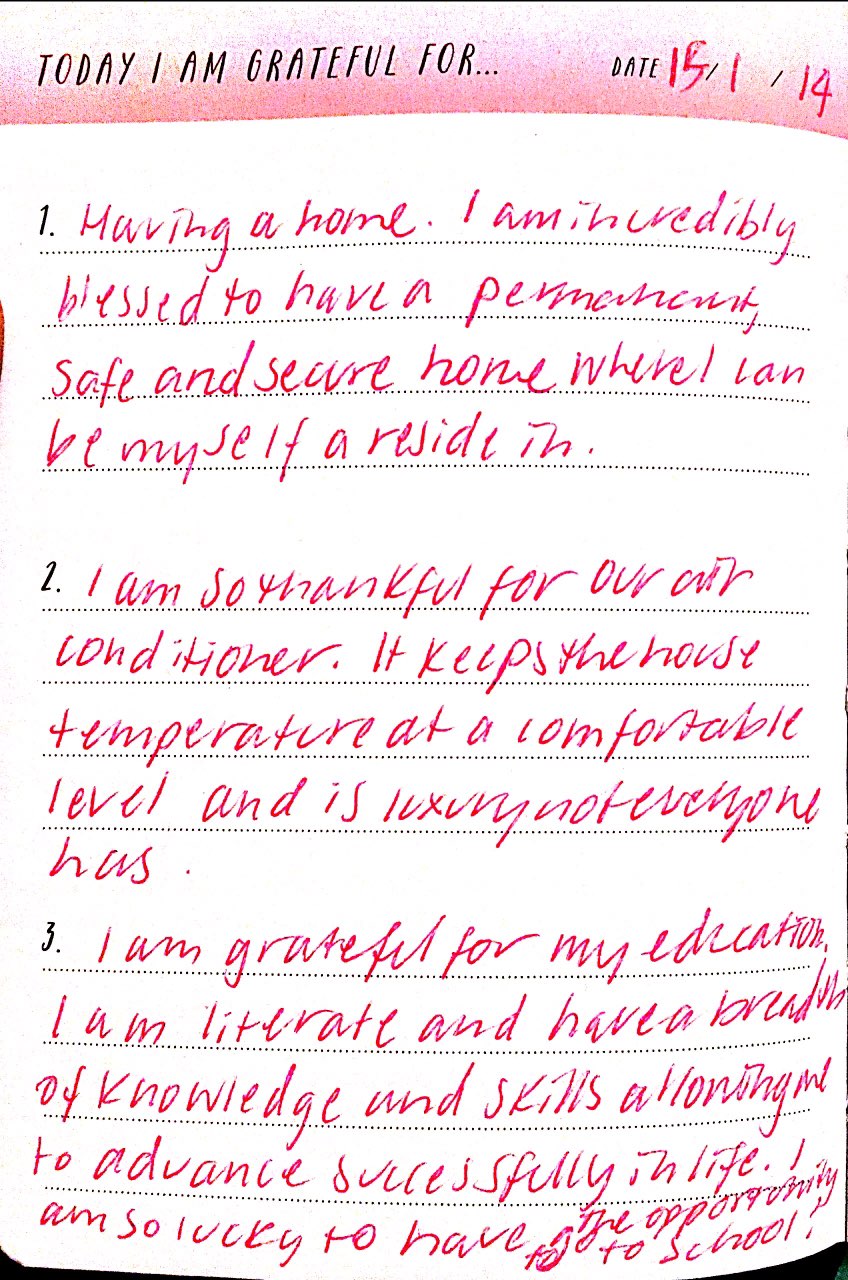 TODAY I AM GRATEFUL FOR... DATE 15/1/14
1. Having a home. I am incredibly
blessed to have a permanent,
safe and secure home where I can
be myself a reside in.
2. I am so thankful for our air
conditioner. It keeps the house
temperature at a comfortable
level and is luxury not everyone
has.
3. I am grateful for my education.
I am literate and have a breadth
of knowledge and skills allowing me
to advance successfully in life. I
am so lucky to have the opportunity
to go to school!